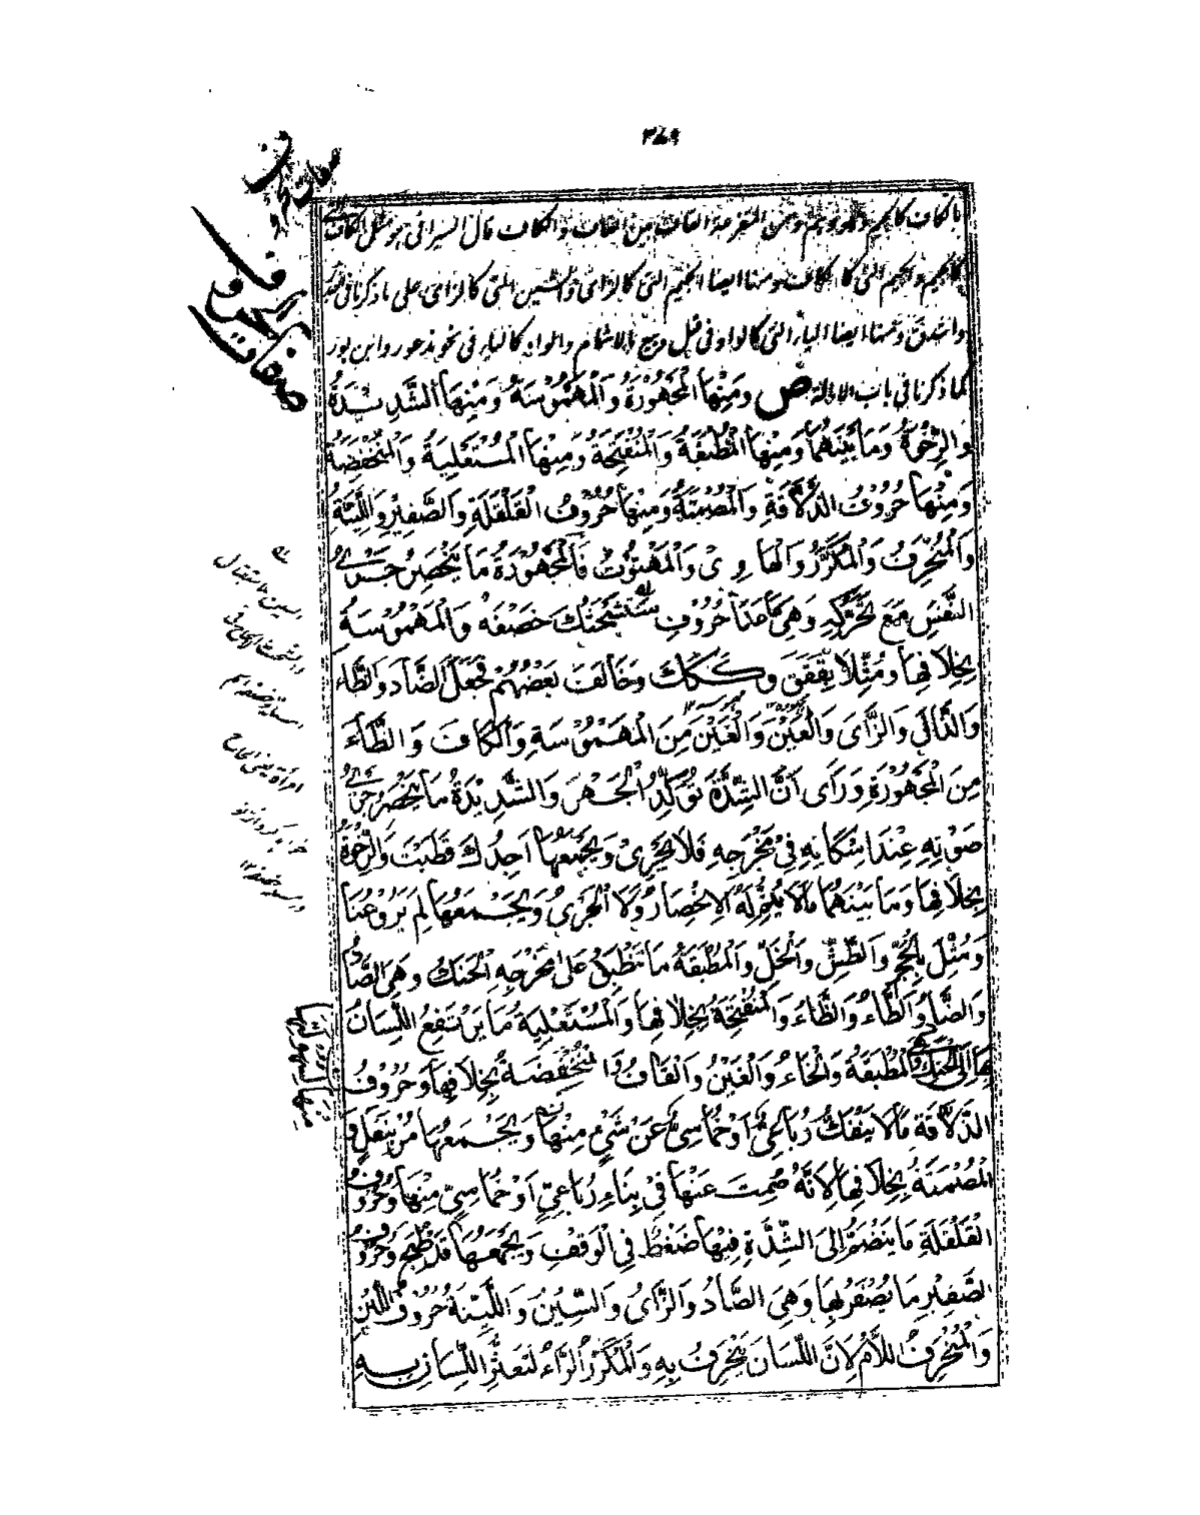 ٣٤٩
صفات الحروف
كالجيم والجيم التي كالكاف ومنها ايضا الجيم التي كالزاى والشين التي كالزاى على ما ذكرنا فى
واشدق ومنها ايضا الياء التي كالواو فى قيل وبيع بالاشمام والواو كالياء فى نحو مذعور وابن بور
كما ذكرنا فى باب الامالة ص وَمِنْهَا الْمَجْهُوْرَةُ وَالْمَهْمُوْسَةُ وَمِنْهَا الشَّدِيْدَةُ
وَالرِّخْوَةُ وَمَا بَيْنَهُمَا وَمِنْهَا الْمُطْبَقَةُ وَالْمُنْفَتِحَةُ وَمِنْهَا الْمُسْتَعْلِيَةُ وَالْمُنْخَفِضَةُ
وَمِنْهَا حُرُوْفُ الذَّلَاقَةِ وَالْمُصْمَتَةُ وَمِنْهَا حُرُوْفُ الْقَلْقَلَةِ وَالصَّفِيْرِ وَاللَّيِّنَةُ
وَالْمُنْحَرِفُ وَالْمُكَرَّرُ وَالْهَاوِىْ وَالْمَهْتُوْتُ فَالْمَجْهُوْرَةُ مَا يَنْحَصِرُ جَرْىُ
النَّفَسِ مَعَ تَحَرُّكِهِ وَهِىَ مَا عَدَا حُرُوْفِ سَتَشْحَثُكَ خَصَفَهْ وَالْمَهْمُوْسَةُ
بِخِلَافِهَا وَمُثِّلَا بِقَقَقَ وَكَكَكَ وَخَالَفَ بَعْضُهُمْ فَجَعَلَ الضَّادَ وَالظَّاءَ
وَالذَّالَ وَالزَّاىَ وَالْعَيْنَ وَالْغَيْنَ مِنَ الْمَهْمُوْسَةِ وَالْكَافَ وَالتَّاءَ
مِنَ الْمَجْهُوْرَةِ وَرَاَى اَنَّ الشِّدَّةَ تُؤَكِّدُ الْجَهْرَ وَالشَّدِيْدَةُ مَا يَنْحَصِرُ جَرْىُ
صَوْتِهِ عِنْدَ اِسْكَانِهِ فِىْ مَخْرَجِهِ فَلَا يَجْرِىْ وَيَجْمَعُهَا اَجِدُكَ قَطَبْتَ وَالرِّخْوَةُ
بِخِلَافِهَا وَمَا بَيْنَهُمَا مَا لَا يَتِمُّ لَهُ الْاِنْحِصَارُ وَلَا الْجَرْىُ وَيَجْمَعُهَا لِمَ يَرْوُعُنَا
وَمُثِّلَ بِالْحَجِّ وَالطَّشِّ وَالْخَلِّ وَالْمُطْبَقَةُ مَا يَنْطَبِقُ عَلٰى مَخْرَجِهِ الْحَنَكُ وَهِىَ الصَّادُ
وَالضَّادُ وَالطَّاءُ وَالظَّاءُ وَالْمُنْفَتِحَةُ بِخِلَافِهَا وَالْمُسْتَعْلِيَةُ مَا يَرْتَفِعُ اللِّسَانُ
بِهَا اِلَى الْحَنَكِ وَهِىَ الْمُطْبَقَةُ وَالْخَاءُ وَالْغَيْنُ وَالْقَافُ وَالْمُنْخَفِضَةُ بِخِلَافِهَا وَحُرُوْفُ
الذَّلَاقَةِ مَا لَا يَنْفَكُّ رُبَاعِىٌّ اَوْ خُمَاسِىٌّ عَنْ شَىْءٍ مِنْهَا وَيَجْمَعُهَا مُرْ بِنَفَلٍ وَ
الْمُصْمَتَةُ بِخِلَافِهَا لِاَنَّهُ صُمِتَ عَنْهَا فِىْ بِنَاءِ رُبَاعِىٍّ اَوْ خُمَاسِىٍّ مِنْهَا وَحُرُوْفُ
الْقَلْقَلَةِ مَا يَنْضَمُّ اِلَى الشِّدَّةِ فِيْهَا ضَغْطٌ فِى الْوَقْفِ وَيَجْمَعُهَا قَدْ طُبِجَ وَحُرُوْفُ
الصَّفِيْرِ مَا يُصْفَرُ بِهَا وَهِىَ الصَّادُ وَالزَّاىُ وَالسِّيْنُ وَاللَّيِّنَةُ حُرُوْفُ اللِّيْنِ
وَالْمُنْحَرِفُ اللَّامُ لِاَنَّ اللِّسَانَ يَنْحَرِفُ بِهِ وَالْمُكَرَّرُ الرَّاءُ لِتَعَثُّرِ اللِّسَانِ بِهِ